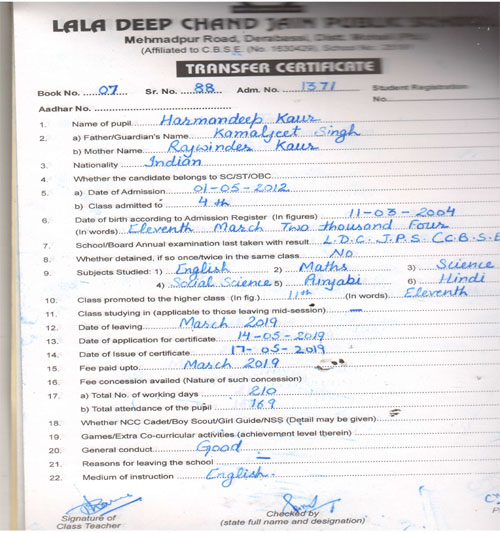 LALA DEEP CHAND JAIN PUBLIC
Mehmadpur Road, Derabassi, Distt.
(Affiliated to C.B.S.E. (No. 1630429), School No.
TRANSFER CERTIFICATE
Book No. ....07.... Sr. No. ....88.... Adm. No. ....1371.... Student Registration
Aadhar No. No.
1. Name of pupil Harmandeep Kaur
2. a) Father/Guardian's Name Kamaljeet Singh
b) Mother Name Rajwinder Kaur
3. Nationality Indian
4. Whether the candidate belongs to SC/ST/OBC
5. a) Date of Admission 01-05-2012
b) Class admitted to 4th
6. Date of birth according to Admission Register (In figures) 11-03-2004
(In words) Eleventh March Two thousand Four
7. School/Board Annual examination last taken with result L.D.C.J.P.S (C.B.S.E
8. Whether detained, if so once/twice in the same class No
9. Subjects Studied: 1) English 2) Maths 3) Science
4) Social Science 5) Punjabi 6) Hindi
10. Class promoted to the higher class (In fig.) 11th (In words) Eleventh
11. Class studying in (applicable to those leaving mid-session) —
12. Date of leaving March 2019
13. Date of application for certificate 14-05-2019
14. Date of Issue of certificate 17-05-2019
15. Fee paid upto March 2019
16. Fee concession availed (Nature of such concession)
17. a) Total No. of working days 210
b) Total attendance of the pupil 169
18. Whether NCC Cadet/Boy Scout/Girl Guide/NSS (Detail may be given)
19. Games/Extra Co-curricular activities (achievement level therein)
20. General conduct Good
21. Reasons for leaving the school —
22. Medium of instruction English
Signature of Checked by
Class Teacher (state full name and designation)